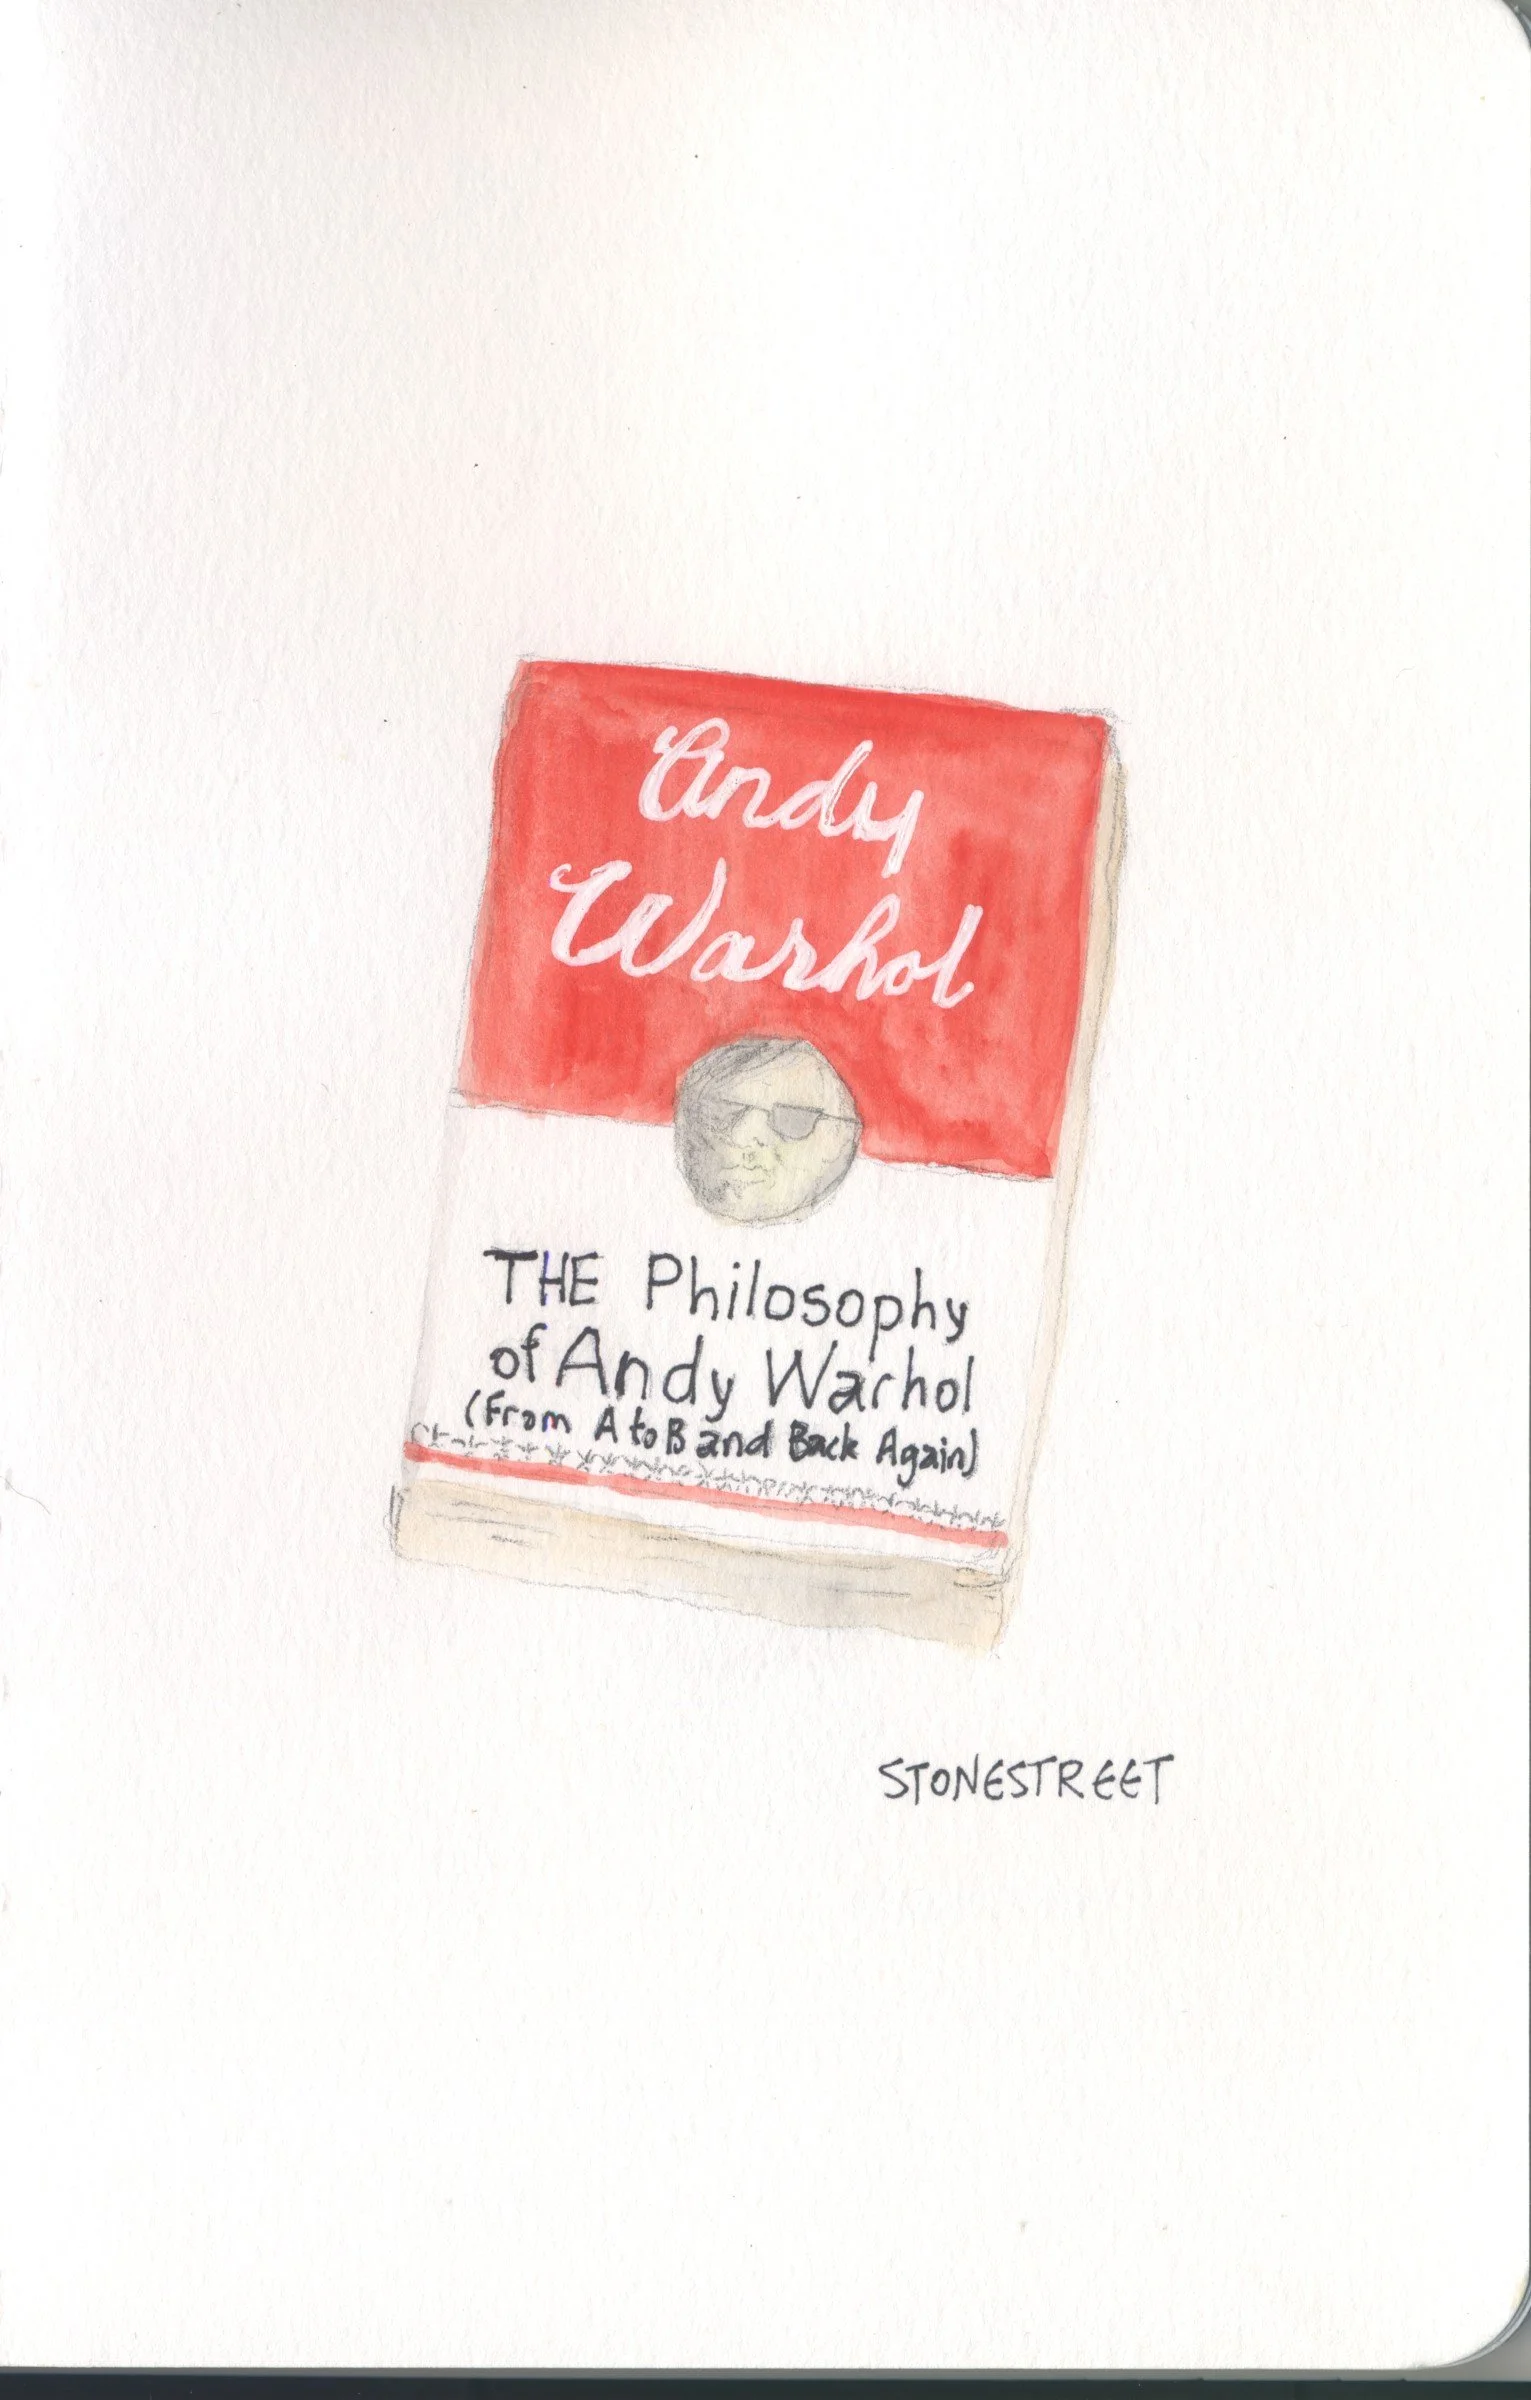 Andy
Warhol
THE Philosophy
of Andy Warhol
(From A to B and Back Again)
STONESTREET